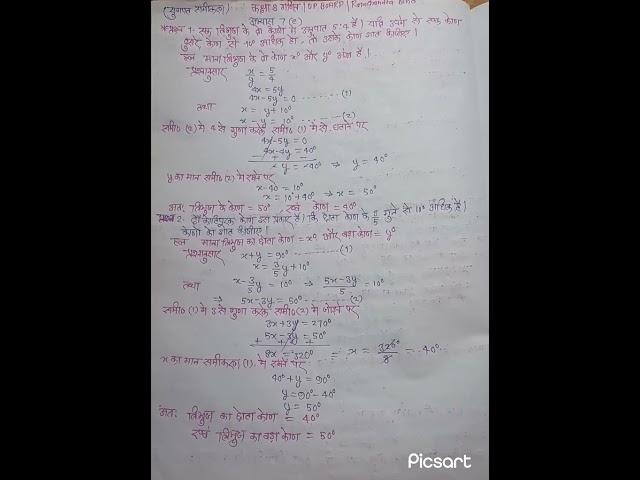 (युगपत समीकरण) कक्षा 8 गणित | UP BOARD |
अभ्यास 7 (c)
प्रश्न 1. एक त्रिभुज के दो कोणों में अनुपात 5:4 है। यदि उनमें से एक कोण
दूसरे कोण से 10° अधिक हो, तो उसके कोण ज्ञात कीजिए।
हल माना त्रिभुज के दो कोण x° और y° अंश हैं।
प्रश्नानुसार x/y = 5/4
4x = 5y
4x-5y = 0 ------(1)
तथा x = y+10°
x-y = 10° ------(2)
समी० (2) में 4 से गुणा करके समी० (1) में से घटाने पर
4x-5y = 0
4x-4y = 40°
- + -
-y = -40° ⇒ y = 40°
y का मान समी० (2) में रखने पर
x-40 = 10°
x = 10°+40° ⇒ x = 50°
अतः त्रिभुज के कोण = 50° एवं कोण = 40°
प्रश्न 2. दो कोटिपूरक कोण इस प्रकार हैं कि छोटा कोण के 3/5 गुने से 10° अधिक है।
कोणों को ज्ञात कीजिए।
हल माना त्रिभुज का छोटा कोण = x° और बड़ा कोण = y°
प्रश्नानुसार x+y = 90° ------(1)
x = 3/5 y+10°
तथा x-3/5 y = 10° ⇒ 5x-3y/5 = 10°
⇒ 5x-3y = 50° ------(2)
समी० (1) में 3 से गुणा करके समी० (2) में जोड़ने पर
3x+3y = 270°
5x-3y = 50°
+ + +
8x = 320° = x = 320°/8 = 40°
x का मान समीकरण (1) में रखने पर
40°+y = 90°
y = 90°-40°
y = 50°
अतः त्रिभुज का छोटा कोण = 40°
एवं त्रिभुज का बड़ा कोण = 50°
Picsart